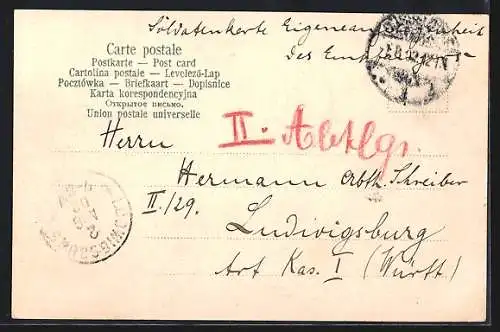 Soldatenkarte Eigene Angelegenheit
des Empfängers
Carte postale
Postkarte — Post card
Cartolina postale — Levelező-Lap
Pocztówka — Briefkaart — Dopisnice
Karta korespondencyjna
Открытое письмо.
Union postale universelle
II. Abtlg.
Herrn
Hermann Schreiber
II./29.
Ludwigsburg
Art Kas. I (Württ)
LUDWIGSBURG